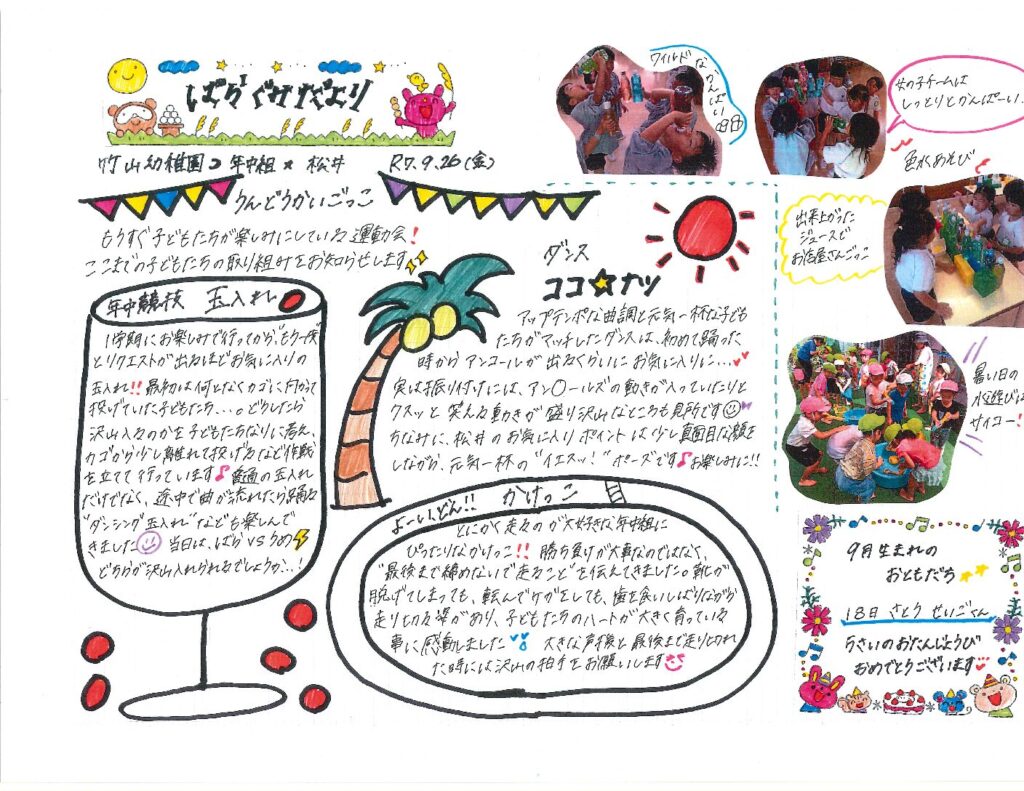 ばらぐみだより
竹山幼稚園 年中組 松井 R7.9.26(金)
うんどうかいごっこ
もうすぐ子どもたちが楽しみにしている運動会!
ここまでの子どもたちの取り組みをお知らせします
年中競技 玉入れ
1学期にお楽しみで行ってから"もう一度"
とリクエストが出るほどお気に入りの
玉入れ!! 最初は何となくカゴに向かって
投げていた子どもたち…。どうしたら
沢山入るのかを子どもたちなりに考え、
カゴから少し離れて投げるなど作戦
を立てて行っています♪普通の玉入れ
だけでなく、途中で曲が流れたら踊る
"ダンシング玉入れ"なども楽しんで
きました 当日は、ばらVSうめ
どちらが沢山入れられるでしょうか…!
ダンス
ココ☆ナツ
アップテンポな曲調と元気一杯な子ども
たちがマッチしたダンスは、初めて踊った
時からアンコールが出るくらいにお気に入りに…
実は振り付けには、アン〇ールズの動きが入っていたりと
クスッと笑える動きが盛り沢山なところも見所です
ちなみに、松井のお気に入りポイントは少し真面目な顔を
しながら、元気一杯の"イエスッ!"ポーズです♪お楽しみに!!
よーい、どん!! かけっこ
とにかく走るのが大好きな年中組に
ぴったりなかけっこ!! 勝ち負けが大事なのではなく、
"最後まで諦めないで走ること"を伝えてきました。靴が
脱げてしまっても、転んでケガをしても、歯を食いしばりながら
走り切る姿があり、子どもたちのハートが大きく育っている
事に感動しました 大きな声援と最後まで走り切れ
た時には沢山の拍手をお願いします
ワイルドな、かんぱい
女の子チームは
しっとりとかんぱーい
色水あそび
出来上がった
ジュースで
お店屋さんごっこ
暑い日の
水遊びは
サイコー!
9月生まれの
おともだち
18日 さとう せいごくん
5さいのおたんじょうび
おめでとうございます